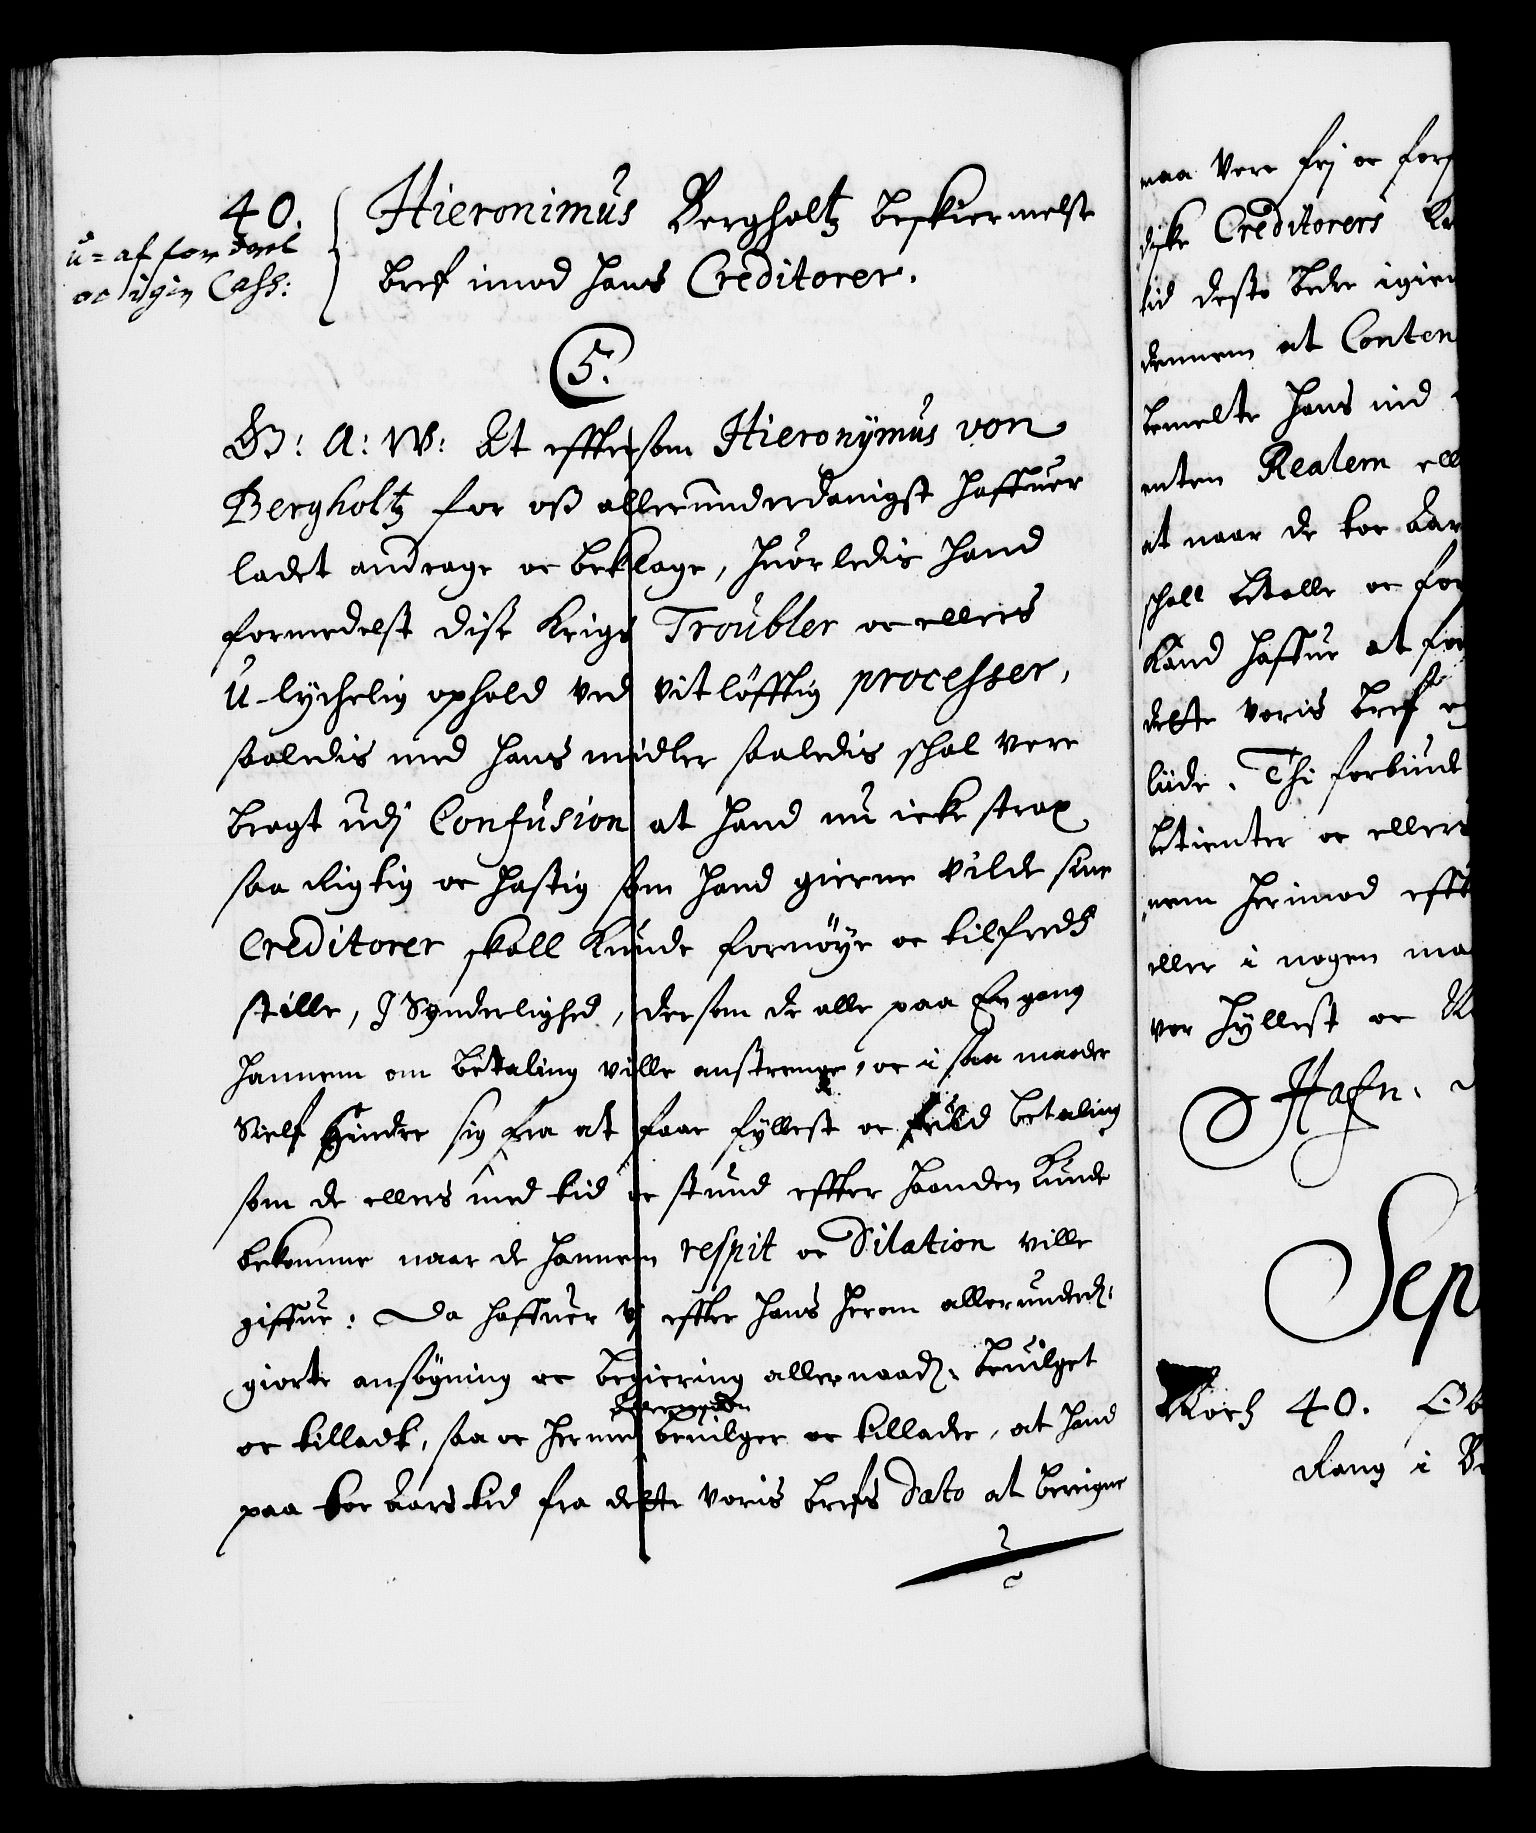 40.
u-affordret
oc igien Cass:
Hieronimus Bergholtz beskiermelse
bref imod hans Creditorer.
5.
G: A: W: At effter som Hieronÿmus von
Bergholtz for oß allerunderdanigst haffuer
ladet andrage oc beklage, huorledis hand
formedelst dise Krigs Troubler oc ellers
u-lyckelig ophold ved vitløfftig processer,
saaledis med hans midler saaledis schal vere
bragt udj Confusion at hand nu icke strax
saa rigtig oc hastig som hand gierne vilde sine
Creditorer skall kunde fornøye oc tilfreds
stille, J Synderlighed, dersom de alle paa En gang
hannem om betaling ville anstrenge, oc i saa maader
Sielf hindre sig fra at faae fyllest oc fuld betaling
som de ellers med tid oc stund effter haanden kunde
bekomme naar de hannem respit oc Dilation ville
giffue: Da haffuer vj effter hans herom allerunderd:
giorte ansøgning oc begiering allernaad: beuilget
oc tilladt, saa oc hermed beuilger oc tillader, at hand
paa toe Aars tid fra dette voris brefs Dato at beregne
maa vere frj oc for
diske Creditorers
tid deste bedre igien
dennem at Conten
bemelte hans mid
enten Realem ell
at naar de toe Aar
schall betalle oc for
kand haffue at for
dette voris bref
liude. Thi forbiude
betienter oc ellers
nem herimod efft
eller i nogen maa
vor hyllest oc
Hafn.
Sep
Morß 40. Ob
Rang i